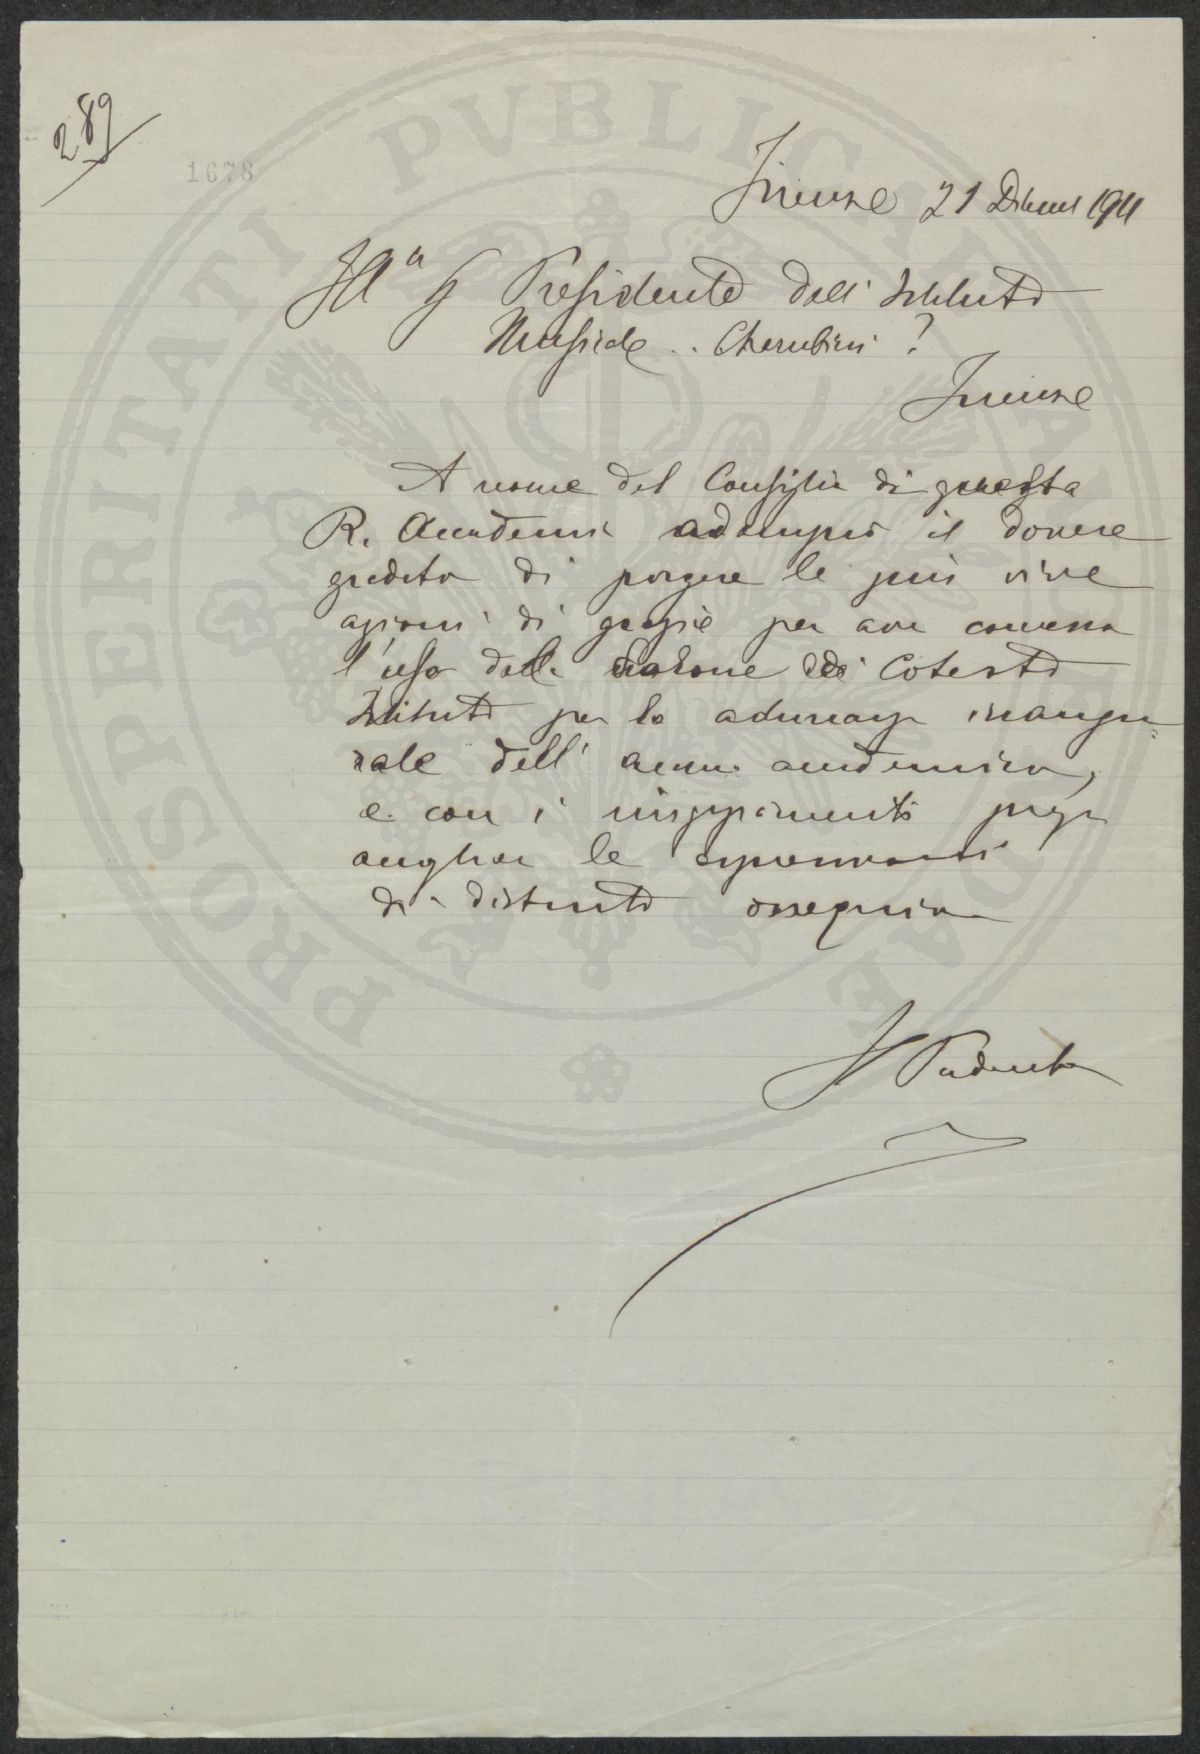 289
1678
Firenze 21 Dicembre 1911
Ill.o Sig Presidente dell' Istituto
Musicale .. Cherubini ?
Firenze
A nome del Consiglio di questa
R. Accademia adempio il dovere
gradito di porgere le più vive
azioni di grazie per aver concesso
l'uso del salone di Cotesto
Istituto per la adunanza inaugu-
rale dell' anno accademico,
e con i ringraziamenti prego
accoglier le espressioni
di distinto ossequio
Il Presidente
PROSPERITATI PVBLICAE